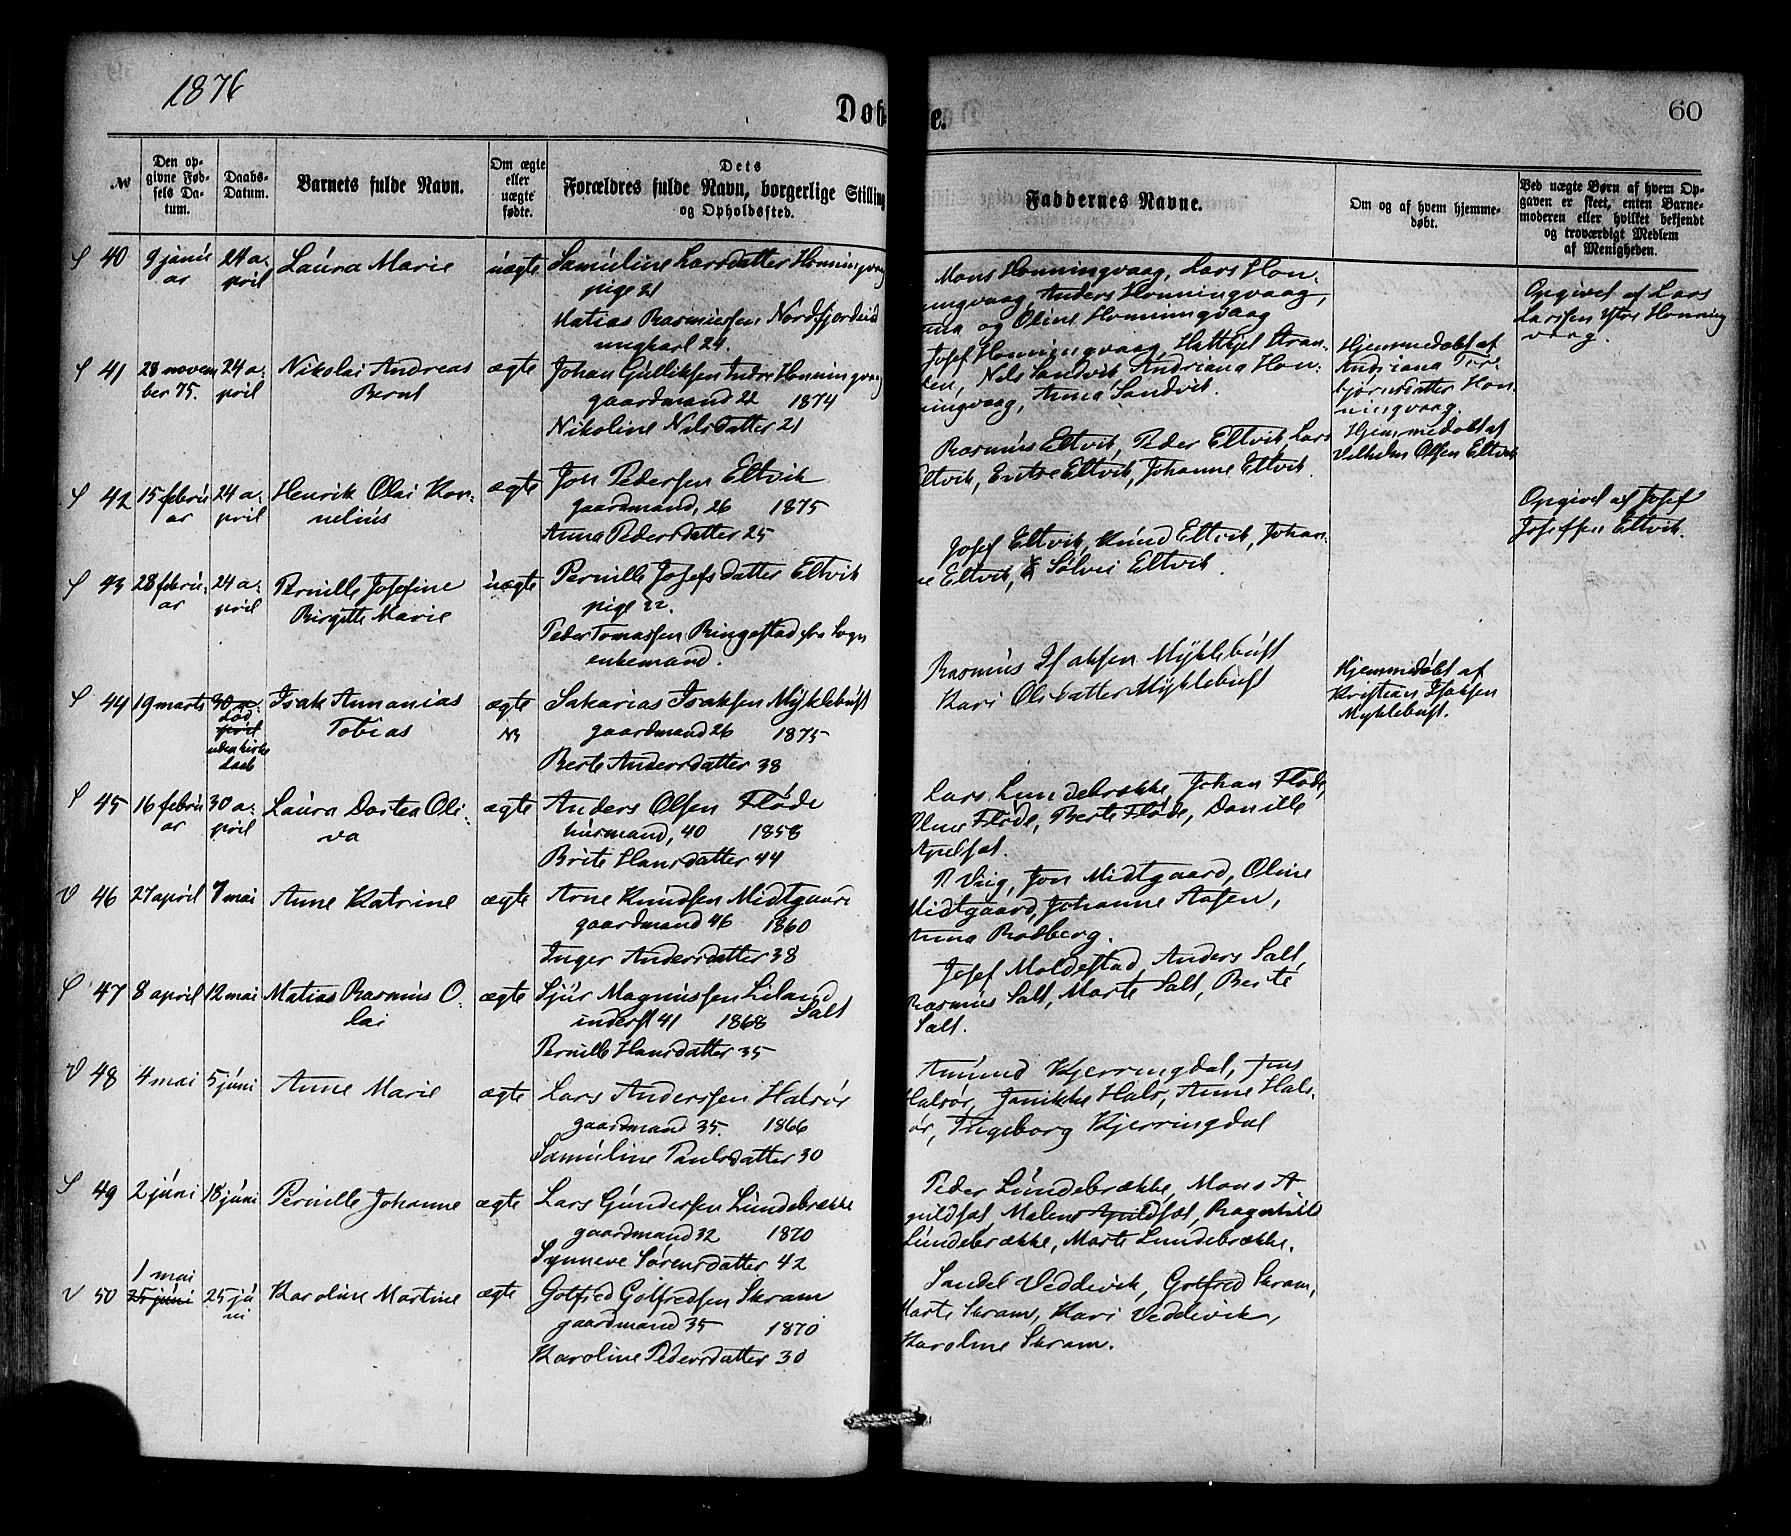 1876
Døbte.
60
№
Den opgivne Fødsels Datum.
Daabs-Datum.
Barnets fulde Navn.
Om ægte eller uægte fødte.
Dets
Forældres fulde Navn, borgerlige Stilling
og Opholdssted.
Faddernes Navne.
Om og af hvem hjemmedøbt.
Ved uægte Børn af hvem Opgaven er skeet, enten Barnemoderen eller hvilket bekjendt og troværdigt Medlem af Menigheden.
S 40 9 januar 24 april Laura Marie uægte Samuline Larsdatter Honningvaag
pige 21
Matias Rasmussen Nordfjordeid
ungkarl 24.
Mons Honningvaag, Lars Hon-
ningvaag, Anders Honningvaag,
og Oline Honningvaag
Opgivet af Lars
Larssen Ytre Honning
vaag.
S 41 28 november 75. 24 april Nikolai Andreas Bernt ægte Johan Gulliksen Indre Honningvaag
gaardmand 22 1874
Nikoline Nilsdatter 21
Josef Honningvaag, Stran-
den, Nils Sandvik, Andriana Hon-
ningvaag, Anna Sandvik.
Hjemmedøbt af
Andriana Tor-
bjørnsdatter Hon-
ningvaag.
S 42 15 februar 24 april Henrik Olai Kor-
nelius ægte Jon Pedersen Eltvik
gaardmand, 26 1875
Anna Pedersdatter 25
Rasmus Eltvik, Peder Eltvik, Lars
Eltvik, Eltvik, Johanne Eltvik
Hjemmedøbt af
Vilhelm Olsen Eltvik
S 43 28 februar 24 april Pernille Josefine
Birgitte Marie uægte Pernille Josefsdatter Eltvik
pige 22.
Peder Tomassen Ringestad fra Sogn
enkemand.
Josef Eltvik, Knud Eltvik, Johan-
ne Eltvik, Sølvei Eltvik.
Opgivet af Josef
Josefsen Eltvik.
S 44 19 marts 30 april
død
uden kirke
daab
Isak Ananias
Tobias ægte Sakarias Isaksen Myklebust
gaardmand 26 1875
Berte Andersdatter 38
Rasmus Isaksen Myklebust
Kari Olsdatter Myklebust
Hjemmedøbt af
Kristian Isaksen
Myklebust.
S 45 16 februar 30 april Laura Dortea Oli-
va ægte Anders Olsen Fløde
husmand, 40 1858
Brite Hansdatter 44
Lars Lundebrække, Johan Fløde,
Oline Fløde, Berte Fløde, Danille
Apelsæt.
V 46 27 april 7 mai Anne Katrine ægte Arne Knudsen Midtgaard
gaardmand 46 1860
Inger Andersdatter 38
R Vrig, Jon Midtgaard, Oline
Midtgaard, Johanne Aasen,
Anna Rødberg.
S 47 8 april 12 mai Matias Rasmus O-
lai ægte Sjur Magnussen Liland
inderst 41 1868 Salt
Pernille Hansdatter 35
Josef Moldestad Anders Salt,
Rasmus Salt, Marte Salt, Berte
Salt.
V 48 4 mai 5 juni Anne Marie ægte Lars Anderssen Halsør
gaardmand 35. 1866
Samuline Paulsdatter 30
Amund Kjerringdal, Jens
Halsør, Janikke Hals, Anne Hals-
ør, Ingeborg Kjerringdal
S 49 2 juni 18 juni Pernille Johanne ægte Lars Gundersen Lundebrække
gaardmand 32 1870
Synneve Sørensdatter 42
Peder Lundebrække, Mons A
pildsæt, Malene Apildsæt, Ragnhild
Lundebrække, Marte Lundebrække.
V 50 1 mai
25 juni 25 juni Karoline Martine ægte Gotfred Gotfredsen Skram
gaardmand 35 1870
Karoline Pedersdatter 30
Sandel Veddevik, Gotfred Skram,
Marte Skram, Kari Veddevik,
Karoline Skram.